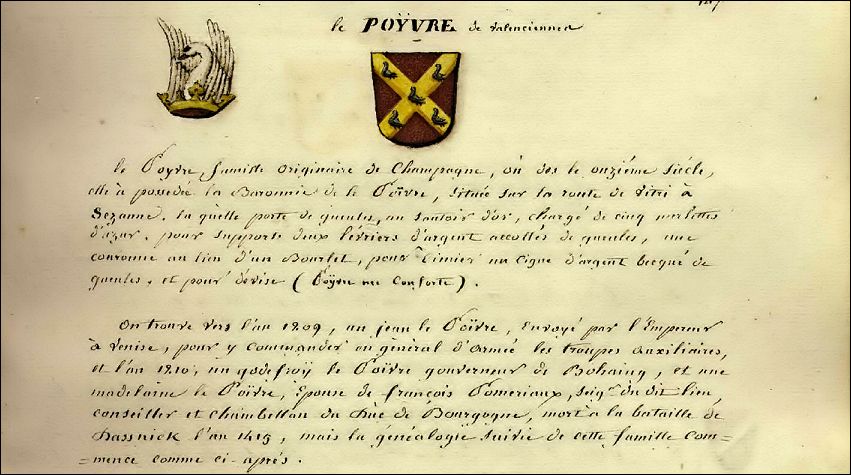 le POŸVRE de Valenciennes
le Poyvre, famille originaire de Champagne, où dès le onzième siècle,
elle à possedée la Baronnie de le Poïvre, située sur la route de Vitri à
Sezanne. la quelle porte de gueules, au sautoir d'or, chargé de cinq merlettes
d'azur. pour supports deux lévriers d'argent accollés de gueules, une
couronne au lieu d'un Bourlet, pour cimier un Cigne d'argent becqué de
gueules, et pour dévise (Poÿvre me Conforte).
On trouve vers l'an 1209, un jean le Poïvre, Envoyé par l'Empereur
à Venise, pour y commander en général d'Armée les troupes auxiliaires,
et l'an 1210, un godefroÿ le Poïvre gouverneur de Bohaing, et une
madelaine le Poïvre, Épouse de françois Pomeriaux, seigr. du dit lieu,
conseiller et Chambellan du Duc de Bourgogne, mort a la bataille de
l'an 1415, mais la généalogie suivie de cette famille com=
=mence comme ci-après.